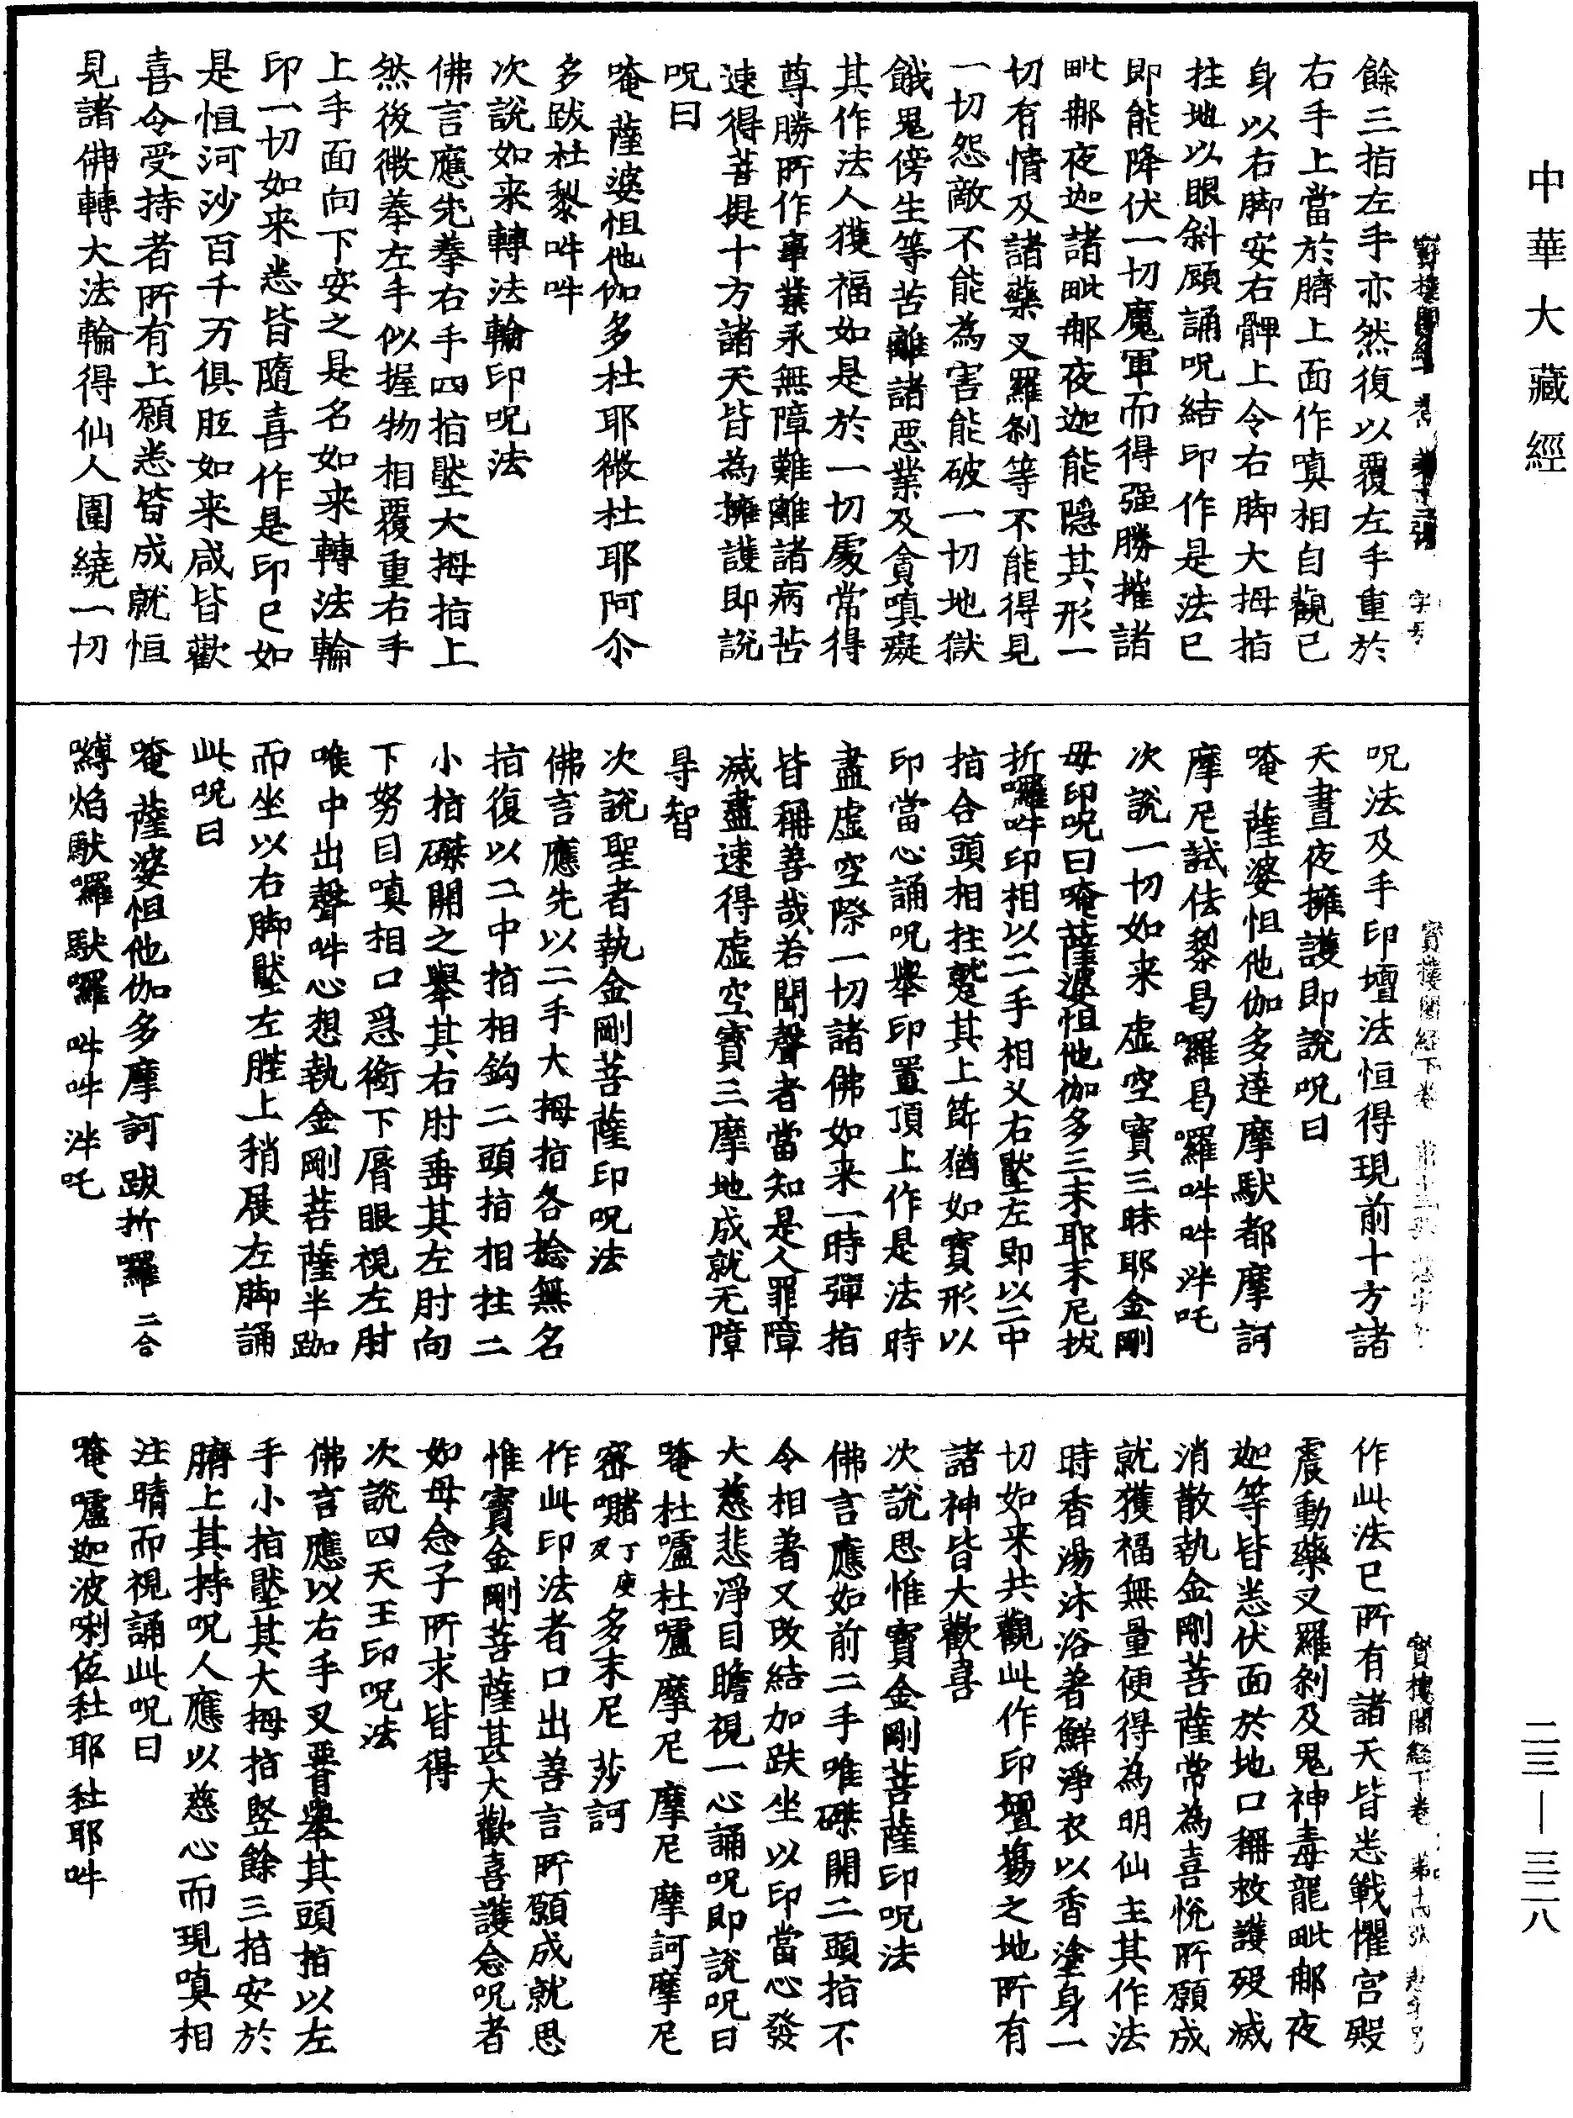 中華大藏經
二三—三二八
餘三指左手亦然復以覆左手重於
右手上當於臍上面作嗔相自觀已
身以右脚安右髀上令右脚大拇指
拄地以眼斜顧誦呪結印作是法已
即能降伏一切魔軍而得强勝摧諸
毗郍夜迦諸毗郍夜迦能隱其形一
切有情及諸藥叉羅刹等不能得見
一切怨敵不能為害能破一切地獄
餓鬼傍生等苦離諸惡業及貪嗔癡
其作法人獲福如是於一切處常得
尊勝所作事業永無障難離諸病苦
速得菩提十方諸天皆為擁護即說
呪曰
唵 薩婆怛他伽多杜耶微杜耶阿尒
多跋杜黎吽吽
次說如来轉法輪印呪法
佛言應先拳右手四指壓大拇指上
然後微拳左手似握物相覆重右手
上手面向下安之是名如来轉法輪
印一切如来悉皆隨喜作是印已如
是恒河沙百千万俱胝如来咸皆歡
喜令受持者所有上願悉皆成就恒
見諸佛轉大法輪得仙人圍繞一切
寶樓閣經下卷
呪法及手印壇法恒得現前十方諸
天晝夜擁護即說呪曰
唵 薩婆怛他伽多達摩馱都摩訶
摩尼試佉黎曷囉曷囉吽吽泮吒
次說一切如来虛空寶三昧耶金剛
母印呪曰唵薩婆怛他伽多三末耶末尼拔
折囉吽印相以二手相叉右壓左即以二中
指合頭相拄蹙其上節猶如寶形以
印當心誦呪舉印置頂上作是法時
盡虛空際一切諸佛如来一時彈指
皆稱善哉若聞聲者當知是人罪障
滅盡速得虛空寶三摩地成就无障
㝵智
次說聖者執金剛菩薩印呪法
佛言應先以二手大拇指各捻無名
指復以二中指相鉤二頭指相拄二
小指磔開之舉其右肘垂其左肘向
下努目嗔相口急銜下脣眼視左肘
喉中出聲吽心想執金剛菩薩半跏
而坐以右脚壓左䏶上稍展左脚誦
此呪曰
唵 薩婆怛他伽多摩訶 跋折囉 二合
嚩焰馱囉馱囉 吽吽吽泮吒
寶樓閣經下卷
作此法已所有諸天皆悉戰懼宮殿
震動藥叉羅刹及鬼神毒龍毗郍夜
迦等皆悉伏面於地口稱救護殁滅
消散執金剛菩薩常為喜悅所願成
就獲福無量便得為明仙主其作法
時香湯沐浴著鮮淨衣以香塗身一
切如来共觀此作印壇場之地所有
諸神皆大歡喜
次說思惟寶金剛菩薩印呪法
佛言應如前二手唯磔開二頭指不
令相著又改結加趺坐以印當心發
大慈悲淨目瞻視一心誦呪即說呪曰
唵杜嚧杜嚧 摩尼 摩尼 摩訶摩尼
審嚪 丁庚反 多末尼 莎訶
作此印法者口出善言所願成就思
惟寶金剛菩薩甚大歡喜護念呪者
如母念子所求皆得
次說四天王印呪法
佛言應以右手叉要舉其頭指以左
手小指壓其大拇指竪餘三指安於
臍上其持呪人應以慈心而現嗔相
注睛而視誦此呪曰
唵嚧迦波唎伍杜耶杜耶吽